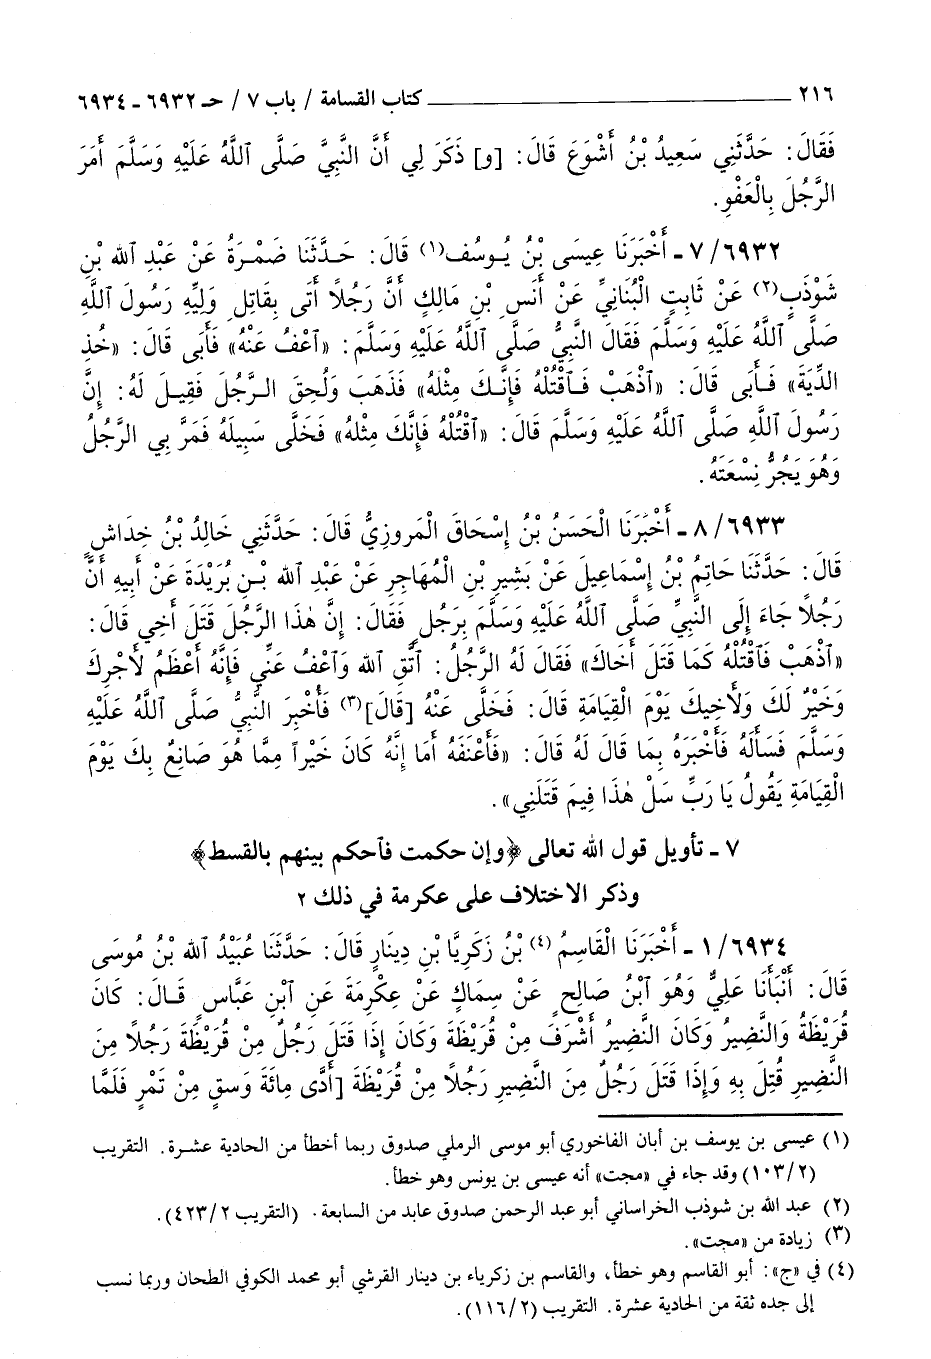 ٢١٦ ــــــــ كتاب القسامة / باب ٧ / حـ ٦٩٣٢ ـ ٦٩٣٤
فَقَالَ: حَدَّثَنِي سَعِيدُ بْنُ أَشْوَعَ قَالَ: [و] ذَكَرَ لِي أَنَّ النَّبِيَّ صَلَّى ٱللَّهُ عَلَيْهِ وَسَلَّمَ أَمَرَ
الرَّجُلَ بِالْعَفْوِ.
٦٩٣٢/ ٧ ـ أَخْبَرَنَا عِيسَى بْنُ يُوسُف(١) قَالَ: حَدَّثَنَا ضَمْرَةُ عَنْ عَبْدِ الله بْنِ
شَوْذَبٍ(٢) عَنْ ثَابِتٍ الْبُنَانِيِّ عَنْ أَنَسِ بْنِ مَالِكٍ أَنَّ رَجُلاً أَتَى بِقَاتِلِ وَلِيِّهِ رَسُولَ ٱللَّهِ
صَلَّى ٱللَّهُ عَلَيْهِ وَسَلَّمَ فَقَالَ النَّبِيُّ صَلَّى ٱللَّهُ عَلَيْهِ وَسَلَّمَ: «ٱعْفُ عَنْهُ» فَأَبَى قَالَ: «خُذِ
الدِّيَةَ» فَأَبَى قَالَ: «ٱذْهَبْ فَٱقْتُلْهُ فَإِنَّكَ مِثْلَهُ» فَذَهَبَ وَلُحِقَ الرَّجُلَ فَقِيلَ لَهُ: إِنَّ
رَسُولَ ٱللَّهِ صَلَّى ٱللَّهُ عَلَيْهِ وَسَلَّمَ قَالَ: «ٱقْتُلْهُ فَإِنَّكَ مِثْلهُ» فَخَلَّى سَبِيلَهُ فَمَرَّ بِي الرَّجُلُ
وَهُوَ يَجُرُّ نِسْعَتَهُ.
٦٩٣٣/ ٨ ـ أَخْبَرَنَا الْحَسَنُ بْنُ إِسْحَاقَ الْمَروزِيُّ قَالَ: حَدَّثَنِي خَالِدُ بْنُ خِدَاشٍ
قَالَ: حَدَّثَنَا حَاتِمُ بْنُ إِسْمَاعِيلَ عَنْ بَشِيرِ بْنِ الْمُهَاجِرِ عَنْ عَبْدِ الله بْنِ بُرَيْدَةَ عَنْ أَبِيهِ أَنَّ
رَجُلاً جَاءَ إِلَى النَّبِيِّ صَلَّى ٱللَّهُ عَلَيْهِ وَسَلَّمَ بِرَجُلٍ فَقَالَ: إِنَّ هٰذَا الرَّجُلَ قَتَلَ أَخِي قَالَ:
«ٱذْهَبْ فَٱقْتُلْهُ كَمَا قَتَلَ أَخَاكَ» فَقَالَ لَهُ الرَّجُلُ: ٱتَّقِ الله وَٱعْفُ عَنِّي فَإِنَّهُ أَعْظَمُ لأَجْرِكَ
وَخَيْرٌ لَكَ وَلأَخِيكَ يَوْمَ الْقِيَامَةِ قَالَ: فَخَلَّى عَنْهُ [قَالَ](٣) فَأُخْبِرَ النَّبِيُّ صَلَّى ٱللَّهُ عَلَيْهِ
وَسَلَّمَ فَسَأَلَهُ فَأَخْبَرَهُ بِمَا قَالَ لَهُ قَالَ: «فَأَعْنَفَهُ أَمَا إِنَّهُ كَانَ خَيْراً مِمَّا هُوَ صَانِعٌ بِكَ يَوْمَ
الْقِيَامَةِ يَقُولُ يَا رَبِّ سَلْ هٰذَا فِيمَ قَتَلَنِي».
٧ ـ تأويل قول الله تعالى ﴿وإن حكمت فٱحكم بينهم بالقسط﴾
وذكر الاختلاف على عكرمة في ذلك ٢
٦٩٣٤/ ١ ـ أَخْبَرَنَا الْقَاسِمُ(٤) بْنُ زَكَرِيَّا بْنِ دِينَارٍ قَالَ: حَدَّثَنَا عُبَيْدُ الله بْنُ مُوسَى
قَالَ: أَنْبَأَنَا عَلِيٌّ وَهُوَ ٱبْنُ صَالِحٍ عَنْ سِمَاكٍ عَنْ عِكْرِمَةَ عَنِ ٱبْنِ عَبَّاسٍ قَالَ: كَانَ
قُرَيْظَةُ وَالنَّضِيرُ وَكَانَ النَّضِيرُ أَشْرَفَ مِنْ قُرَيْظَةَ وَكَانَ إِذَا قَتَلَ رَجُلٌ مِنْ قُرَيْظَةَ رَجُلاً مِنَ
النَّضِيرِ قُتِلَ بِهِ وَإِذَا قَتَلَ رَجُلٌ مِنَ النَّضِيرِ رَجُلاً مِنْ قُرَيْظَةَ [أَدَّى مِائَةَ وَسقٍ مِنْ تَمْرٍ فَلَمَّا
(١) عيسى بن يوسف بن أبان الفاخوري أبو موسى الرملي صدوق ربما أخطأ من الحادية عشرة. التقريب
(١٠٣/٢) وقد جاء في «مجت» أنه عيسى بن يونس وهو خطأ.
(٢) عبد الله بن شوذب الخراساني أبو عبد الرحمن صدوق عابد من السابعة. (التقريب ٤٢٣/٢).
(٣) زيادة من «مجت».
(٤) في «ج»: أبو القاسم وهو خطأ، والقاسم بن زكرياء بن دينار القرشي أبو محمد الكوفي الطحان وربما نسب
إلى جده ثقة من الحادية عشرة. التقريب (١١٦/٢).